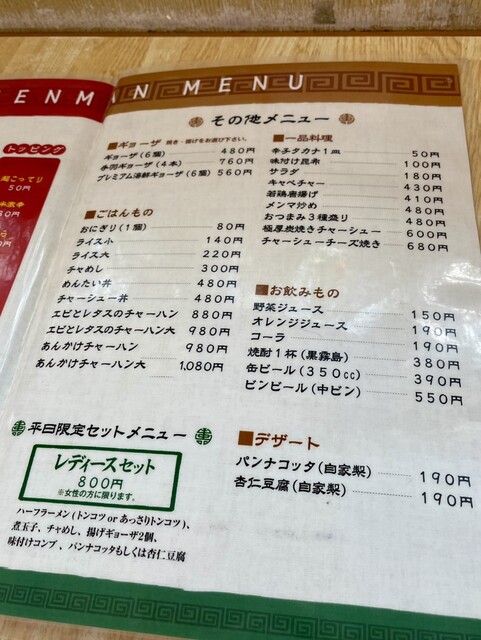 ENM N MENU
トッピング
50円
その他メニュー
■ギョーザ 焼き・揚げをお選び下さい。
ギョーザ(6個) 480円
手羽ギョーザ(4本) 760円
プレミアム海鮮ギョーザ(6個) 560円
■ごはんもの
おにぎり(1個) 80円
ライス小 140円
ライス大 220円
チャめし 300円
めんたい丼 480円
チャーシュー丼 480円
エビとレタスのチャーハン 880円
エビとレタスのチャーハン大 980円
あんかけチャーハン 980円
あんかけチャーハン大 1,080円
平日限定セットメニュー
レディースセット
800円
※女性の方に限ります。
ハーフラーメン(トンコツ or あっさりトンコツ)、
煮玉子、チャめし、揚げギョーザ2個、
味付けコンブ、パンナコッタもしくは杏仁豆腐
■一品料理
辛子タカナ1皿 50円
味付け昆布 100円
サラダ 180円
キャベチャー 430円
若鶏唐揚げ 410円
メンマ炒め 480円
おつまみ3種盛り 480円
極厚炭焼きチャーシュー 600円
チャーシューチーズ焼き 680円
■お飲みもの
野菜ジュース 150円
オレンジジュース 190円
コーラ 190円
焼酎1杯(黒霧島) 380円
缶ビール(350cc) 390円
ビンビール(中ビン) 550円
■デザート
パンナコッタ(自家製) 190円
杏仁豆腐(自家製) 190円